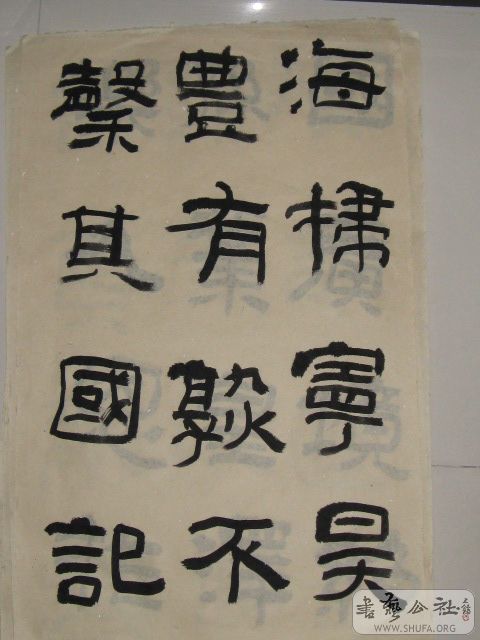 海掃寧昊
豊有敦不
馨其國記
書藝公社
WWW.SHUFA.ORG